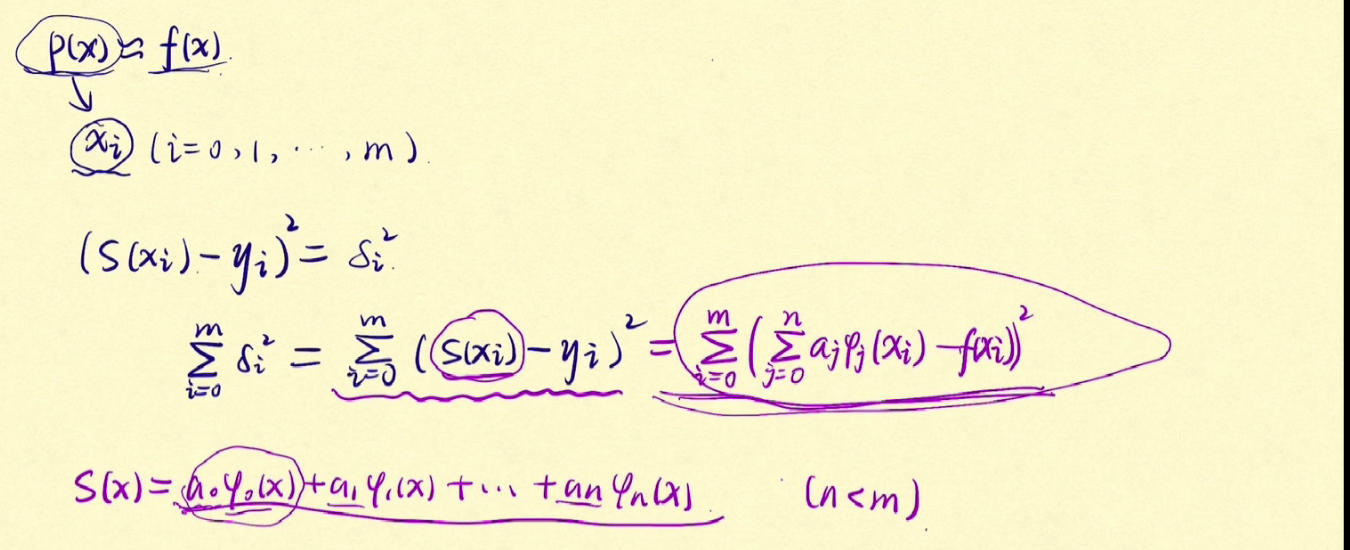 p(x) ≈ f(x).
↓
x_i (i=0,1,⋯,m).
(S(x_i)-y_i)^2 = δ_i^2.
∑_{i=0}^{m} δ_i^2 = ∑_{i=0}^{m} (S(x_i)-y_i)^2 = ∑_{i=0}^{m} (∑_{j=0}^{n} a_j φ_j(x_i) - f(x_i))^2
S(x) = a_0 φ_0(x) + a_1 φ_1(x) + ⋯ + a_n φ_n(x) (n<m).